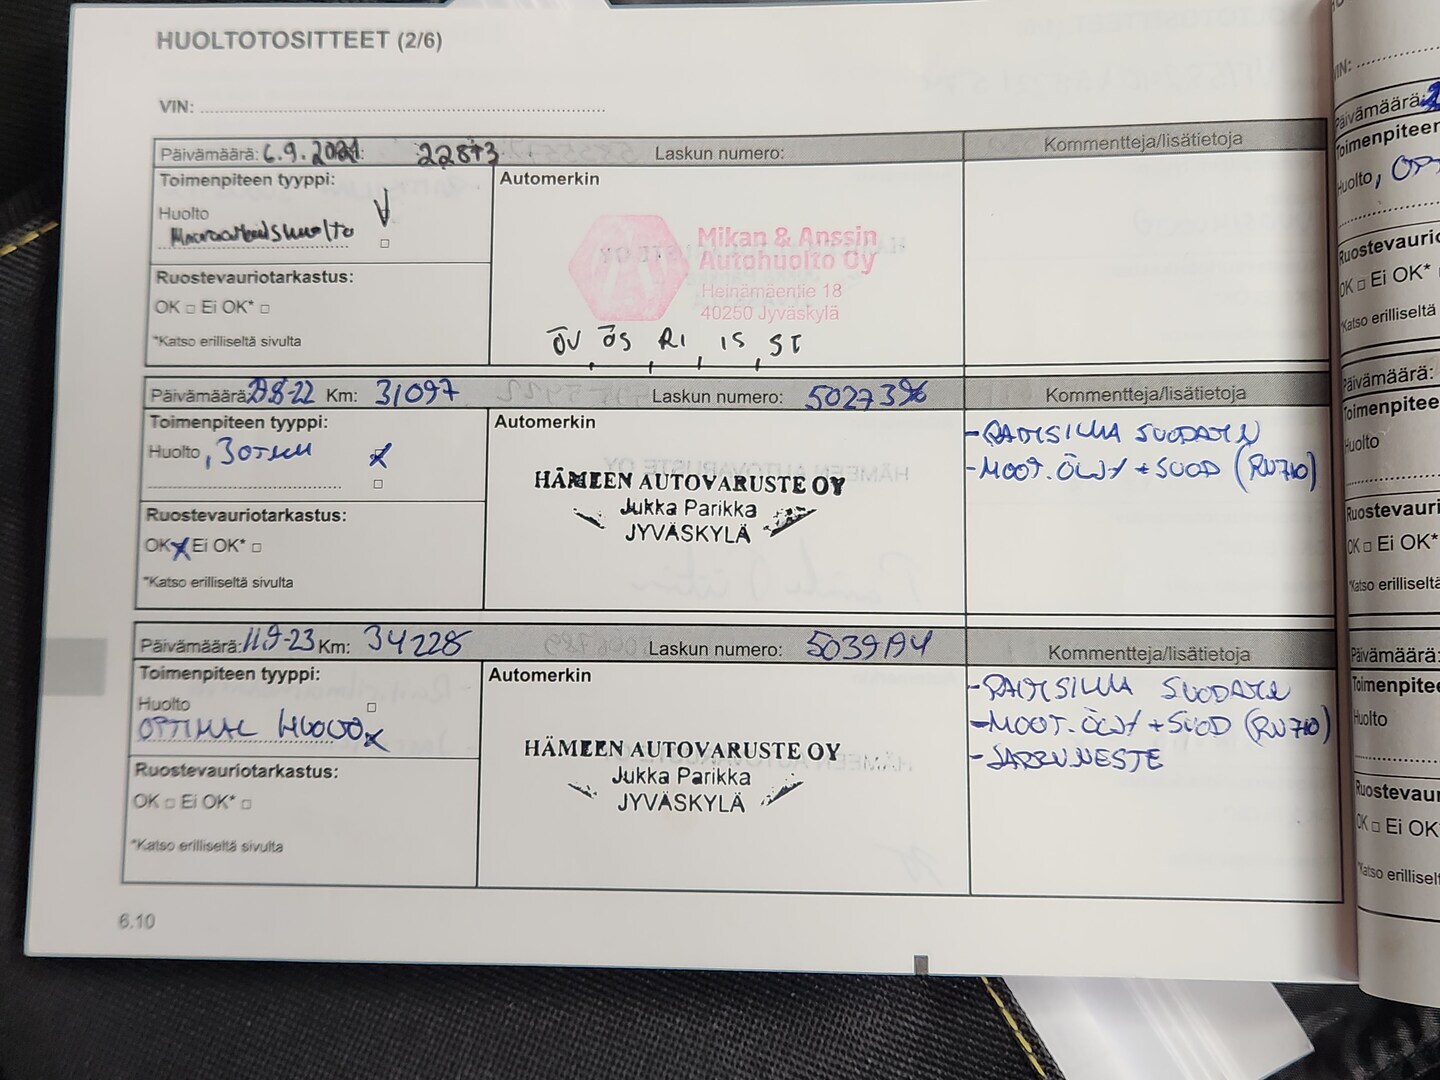 HUOLTOTOSITTEET (2/6)
VIN:
Päivämäärä: 6.9.2021 22873 Laskun numero: Kommentteja/lisätietoja
Toimenpiteen tyyppi: Automerkin
Huolto
Määräaikaishuolto
Mikan & Anssin
Autohuolto Oy
Heinämäentie 18
40250 Jyväskylä
Ruostevauriotarkastus:
OK □ Ei OK* □
ÖV, ÖS, RI, IS, ST
*Katso erilliseltä sivulta
Päivämäärä: 29.8-22 Km: 31097 Laskun numero: 5027396 Kommentteja/lisätietoja
Toimenpiteen tyyppi: Automerkin
Huolto,
- RAITISILMA SUODATIN
- MOOT.ÖLJY + SUOD (RN710)
HÄMEEN AUTOVARUSTE OY
Jukka Parikka
JYVÄSKYLÄ
Ruostevauriotarkastus:
OK x Ei OK* □
*Katso erilliseltä sivulta
Päivämäärä: 11.9-23 Km: 34228 Laskun numero: 5039194 Kommentteja/lisätietoja
Toimenpiteen tyyppi: Automerkin
Huolto □
OPTIMAL HUOLTO x
- RAITISILMA SUODATIN
- MOOT.ÖLJY + SUOD (RN710)
- JARRUNESTE
HÄMEEN AUTOVARUSTE OY
Jukka Parikka
JYVÄSKYLÄ
Ruostevauriotarkastus:
OK □ Ei OK* □
*Katso erilliseltä sivulta
6.10
VIN:
Päivämäärä:
Toimenpiteen
Huolto,
Ruostevaurio
OK □ Ei OK*
*Katso erilliseltä
Päivämäärä:
Toimenpitee
Huolto
Ruostevauri
OK □ Ei OK*
*Katso erilliselt
Päivämäärä:
Toimenpitee
Huolto
Ruostevaur
OK □ Ei OK
*Katso erillisel